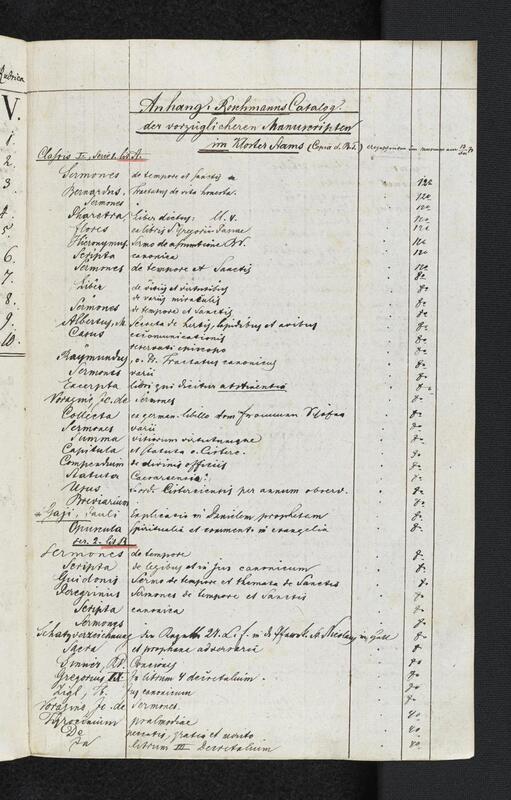 Rubrica
V.
1
2.
3
4.
5
6.
7.
8.
9.
10.
Anhang: Roschmanns Catalog.
der vorzüglicheren Manuscripten
im Kloster Stams (Copia d. Bd.)
Classis I. Serie 1. lit A.
Sermones de tempore et sanctis 12o
Bernardus, Tractatus de vita honesta. 12o
Sermones 12o
Pharetra liber dictus: 12o
Flores ex libris S. Gregorii Papae 12o
Hieronymus, Sermo de assumtione BV. 12o
Scripta canonica 12o
Sermones de tempore et Sanctis 12o
Liber de vitiis et virtutibus 8o
" de variis miraculis 8o
Sermones de tempore et Sanctis 8o
Albertus, M. Secreta de herbis, lapidibus et avibus 8o
Casus excommunicationis 8o
" reservati episcopo 8o
Raymundus, o. Pr. Tractatus canonicus 8o
Sermones varii 8o
Excerpta libri qui dicitur abstinentia 8o
Voragine, Jc. de Sermones 8o
Collecta ex german. libello 8o
Sermones varii 8o
Summa vitiorum virtutumque 8o
Capitula et Statuta o. Cisterc. 8o
Compendium de divinis officiis 8o
Statuta 8o
Usus S. ord. Cisterciensis per annum observ. 8o
Breviarium 8o
* Gazi, Pauli Explicatio in Danielem prophetam 8o
Opuscula spiritualia et comment. in evangelia 8o
ser. 2. lit B.
Sermones de tempore 8o
Scripta de legibus et in jus canonicum 8o
Guidonis Sermo de tempore et themata de Sanctis 8o
Peregrinus Sermones de tempore et Sanctis 8o
Scripta canonica 8o
Sermones 8o
Schatzverzeichnung 8o
Sacra et prophana adversaria 8o
Zinner, Rd. Conciones 8o
Gregorius IX. In librum 4 decretalium. 8o
Zigl, Th. Jus canonicum 8o
Voragine, Jc. de Sermones 8o
Tyrocinium psalmodiae 4o
De peccatis, gratia et merito 4o
In librum III Decretalium 4o